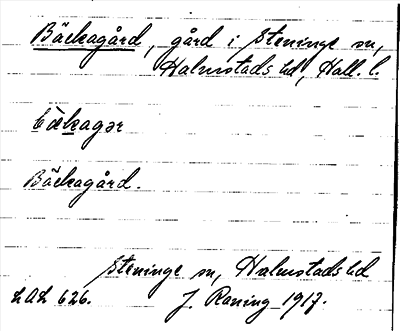 Bäckagård, gård i Steninge sn,
Halmstads hd, Hall. l.
bäkagər
Bäckagård.
Steninge sn, Halmstads hd
LAL 626. J. Raning 1917.